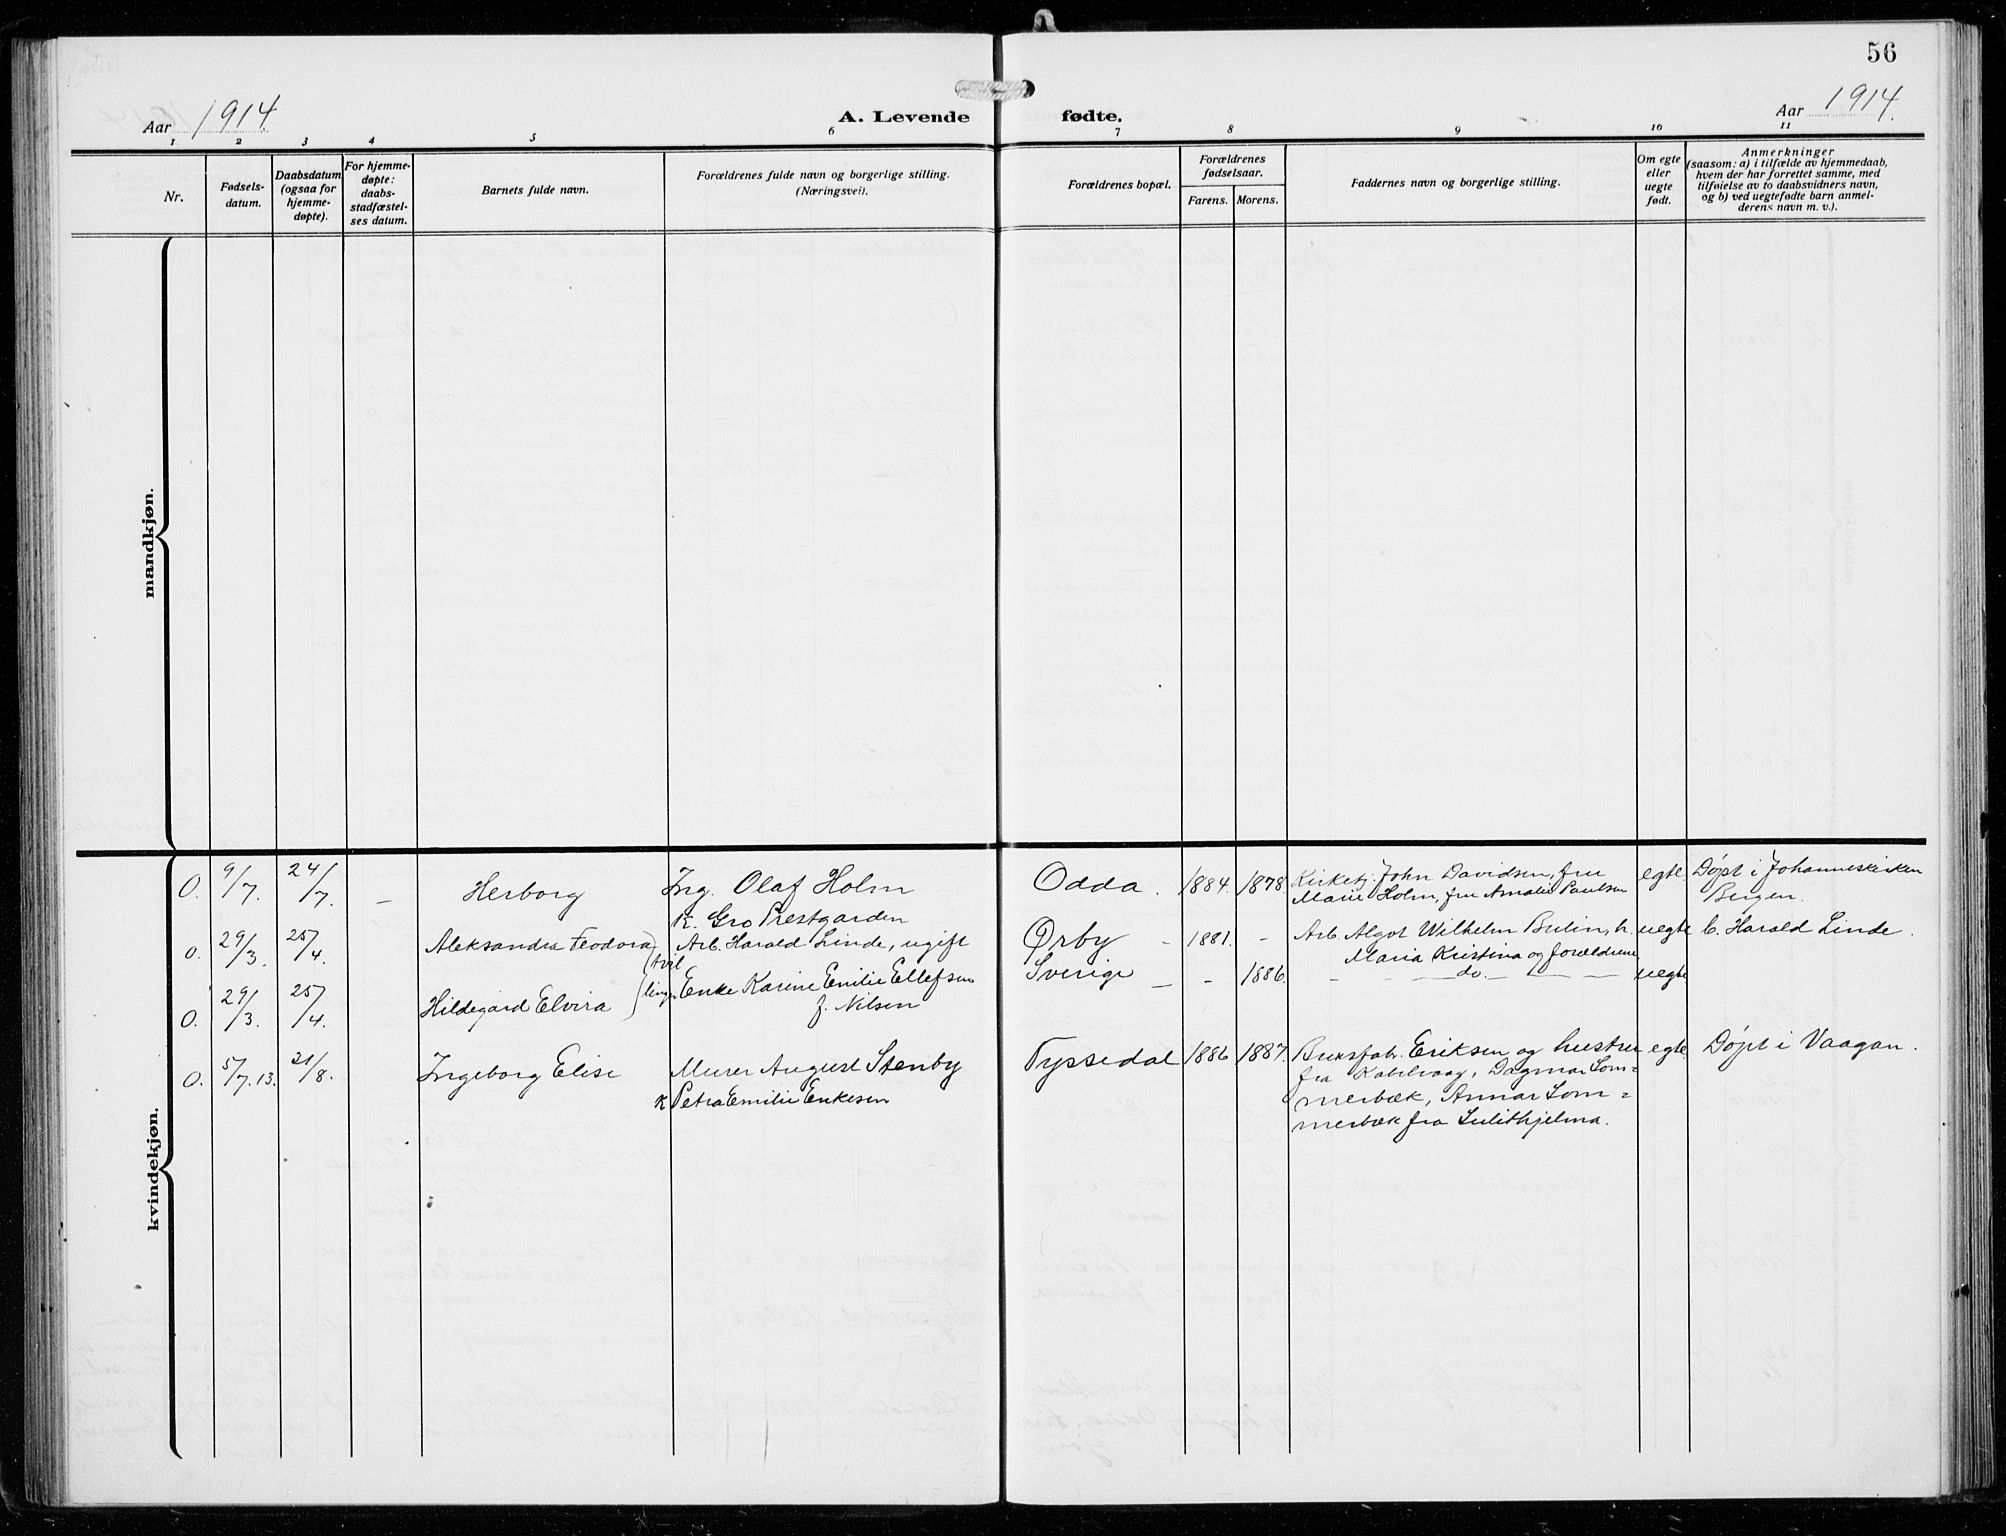 56
Aar 1914.
A. Levende fødte.
Aar 1914.
1 2 3 4 5 6 7 8 9 10 11
Nr.
Fødsels-
datum.
Daabsdatum
(ogsaa for
hjemme-
døpte).
For hjemme-
døpte:
daabs-
stadfæstel-
ses datum.
Barnets fulde navn.
Forældrenes fulde navn og borgerlige stilling.
(Næringsvei).
Forældrenes bopæl.
Forældrenes
fødselsaar.
Farens. Morens.
Faddernes navn og borgerlige stilling.
Om egte
eller
uegte
født.
Anmerkninger
(saasom: a) i tilfælde av hjemmedaab,
hvem der har forrettet samme, med
tilføielse av to daabsvidners navn,
og b) ved uegtefødte barn anmel-
derens navn m. v.).
mandkjøn.
kvindekjøn.
0. 9/7. 24/7. – Herborg Ing. Olaf Holm
K. Gro Prestgarden
Odda. 1884. 1878. Kirketj. John Davidsen, fru
Marie Holm, fru Amalie Paulsen
egte. Døpt i Johanneskirken
Bergen.
0. 29/3. 25/4. Aleksandra Feodora Arb. Harald Linde, ugift
Ørby – 1881. – Arb. Algot Wilhelm Bulin, h.
Maria Kristina og forældrene
uegte b. Harald Linde.
tvil
linger
0. 29/3. 25/4. Hildegard Elvira Enke Karine Emilie Ellefsen
f. Nilsen
Sverige – – 1886. – do. – uegte
0. 5/7.13. 21/8. Ingeborg Elise Murer August Stenby
K Petra Emilie Enkesen
Tyssedal 1886 1887. Eriksen og hustru
fra Kabelvaag, Dagmar Som=
merbæk, Annar Som=
merbæk fra Sulithjelma.
egte. Døpt i Vaagan.